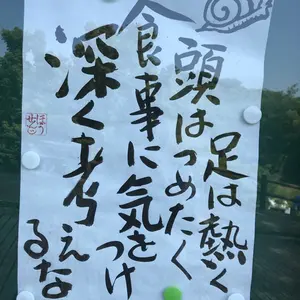 足は熱く
頭はつめたく
食事に気をつけ
深く考えな
るな